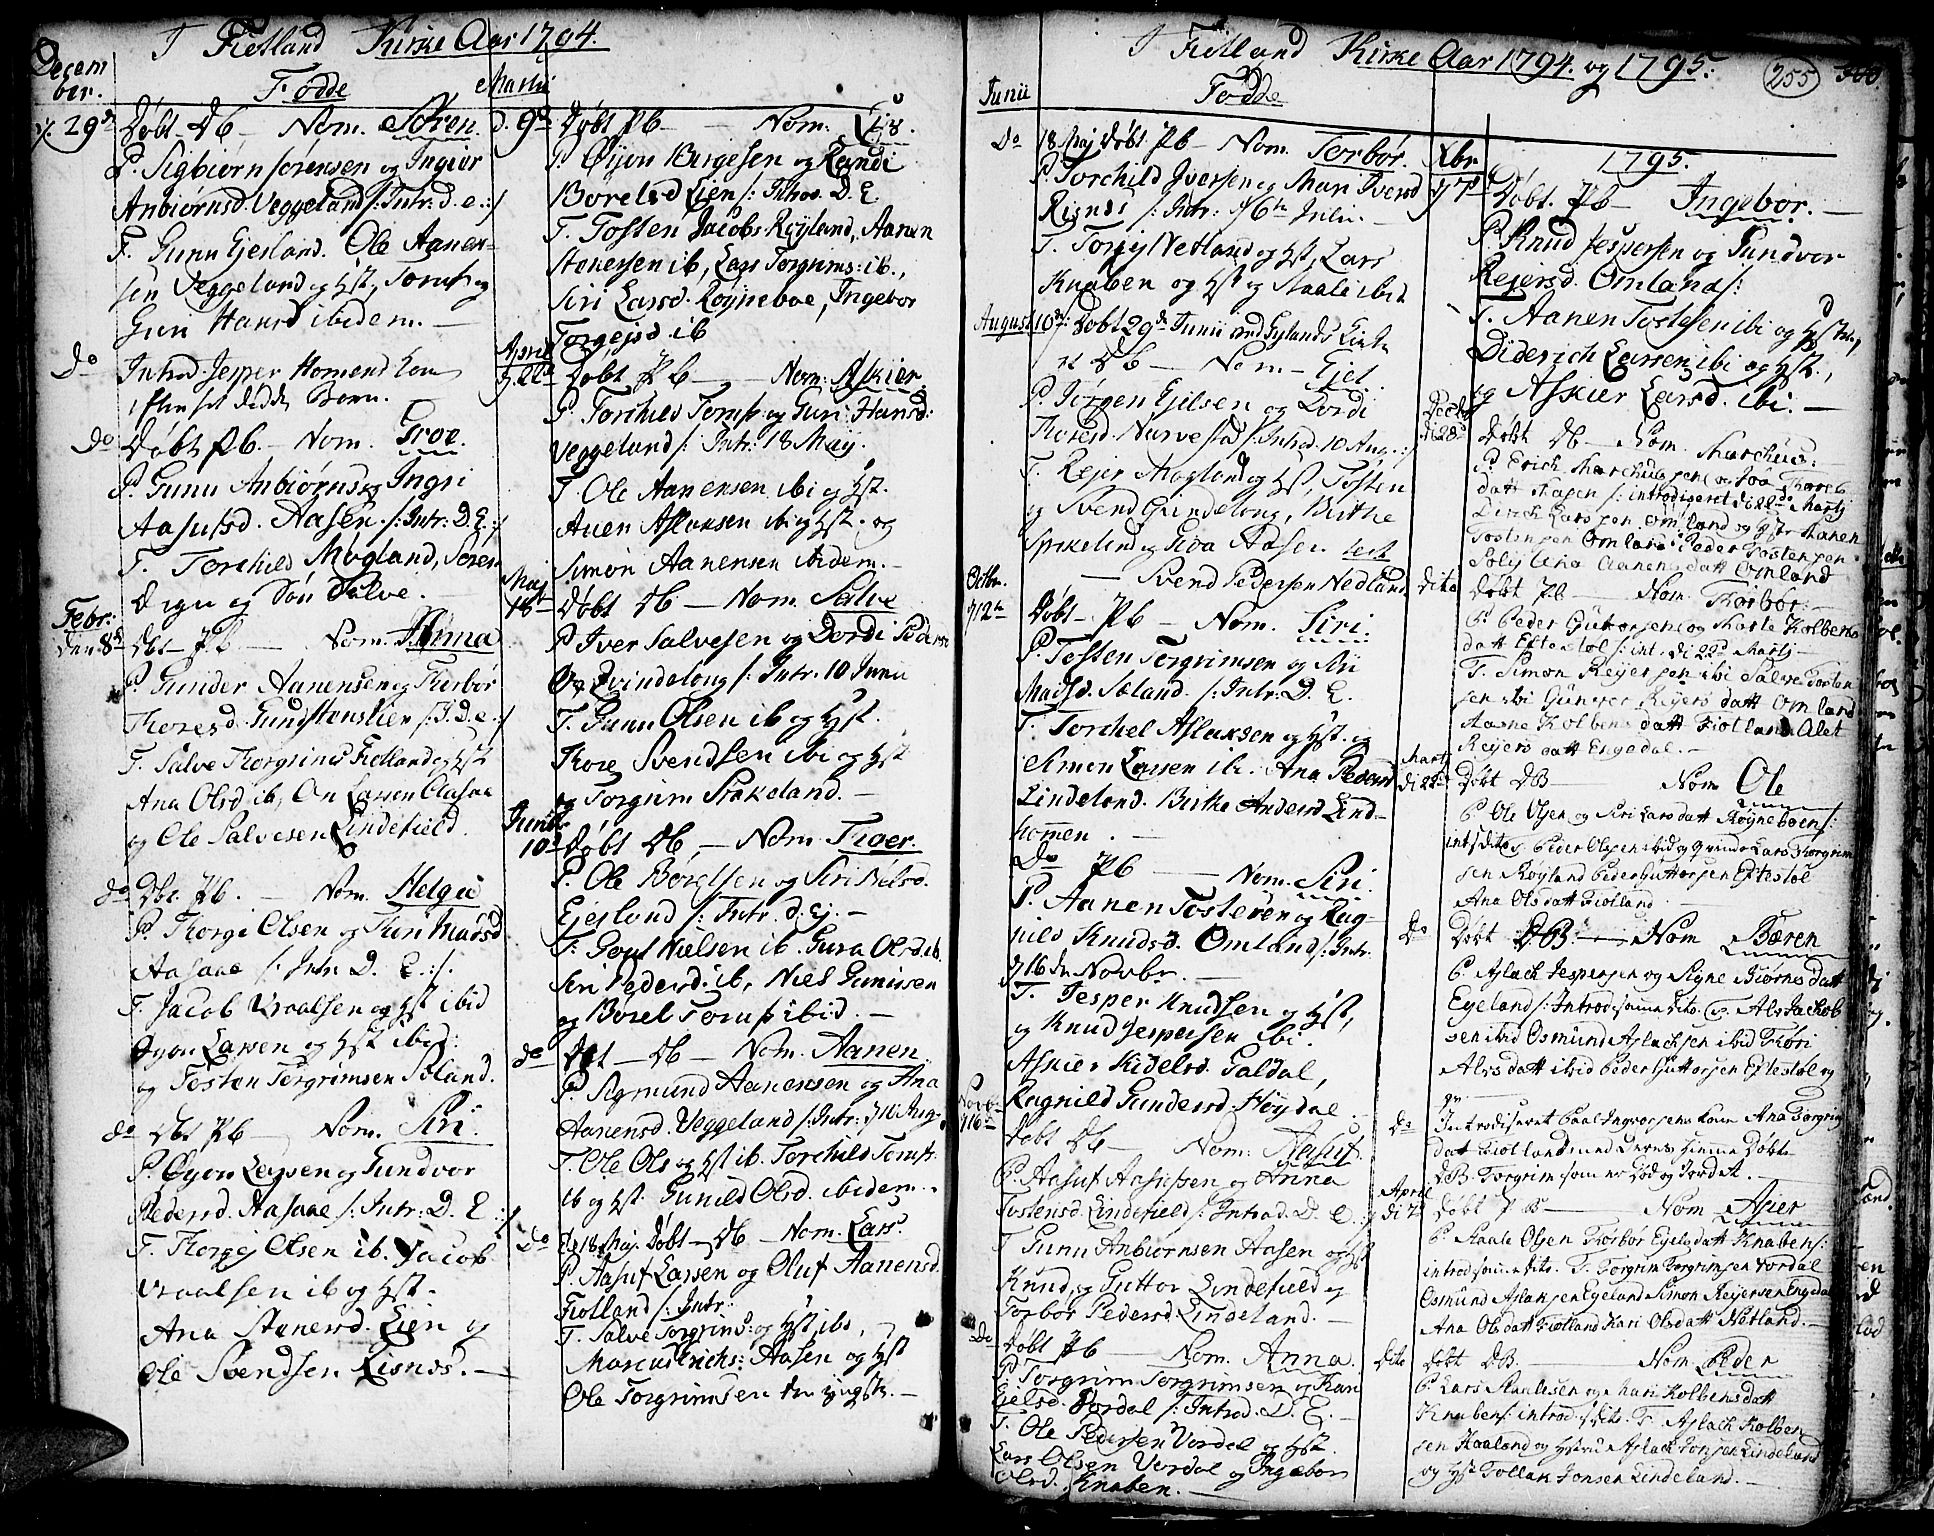 I Fiotland Kirke Aar 1794.
Decem
ber.
Fødde
d. 29d
Døbt Db — Nom. Søren.
P. Sigbiørn Sørensen og Ingier
Anbiørnsd. Veggeland /: Intr: d. e. :/
F. Gunu Ejesland. Ole Aanen-
sen Veggeland og Hst, Tomas og
Guri Hansd ibidem. —
do
Introd. Jesper Homens Kone
Barn.
do
Døbt Pb. — Nom. Groe.
P. Gunu Anbiørns og Ingri
Aasulsd. Aasen /: Intr: D. E. :/
F. Torchild Møgland, Søren
Degn og Søn Salve.
Febr:
den 8d
Dbt Pb. — Nom. Anna
P. Gunder Aanensen og Thorbor
Thoresd. Gundstenslien /: I. D. e. :/
F. Salve Thorgrims Fiotland og Hst
Ana Olsd ib, On Larsen Olasaa
og Ole Salvesen Lindefield.
do
Dbt. Pb. — Nom. Helgie
P. Thorgi Olsen og Guri Madsd
Aasaae /: Intr. D. E. :/.
F. Jacob Vraalsen og Hst ibid
Øyon Larsen og Hst ibid:
og Tosten Torgrimsen Soland.
do
Dbt Pb — Nom. Siri.
P. Øyon Larsen og Gundvor
Pedersd. Aasaae /: Intr: D. E :/
F. Thorgej Olsen ib. Jacob
Vraalsen ib og Hst.
Ana Stenersd. Lien og
Ole Svendsen Risnes. —
Martii
d. 9d
Døbt Pb — Nom. Lis.
P. Øyon Birgesen og Randi
Borelsd Lien /: Introd. D. E.
F. Tosten Jacobs Røyland, Aanen
Stenersen ib, Lars Torgrims: ib.,
Siri Larsd. Røyneboe, Ingebor
Torgejsd ib
April
d. 22d
Døbt Pb — Nom: Askier.
P. Torchild Tomas og Guri Hansd:
Veggeland /: Intr: 18 May.
F. Ole Aanensen ibi og Hst.
Auen Aslaksen ibi og Hst. og
Simon Aanensen ibidem. —
Maj
18d
Døbt Db — Nom. Salve
P. Iver Salvesen og Dordi Peders
Qvindelong /: Intr. 10 Junii
F. Gunu Olsen ib og Hst.
Thore Svendsen ibi og Hst
og Torgrim Spikeland. —
Junii
10d
Døbt Db, — Nom. Tioer.
P. Ole Borelsen og Siri Nelsd.
Ejesland /: Intr. d. ej. —
F: Poul Nielsen ib. Gura Olsd ib.
Siri Pedersd: ib, Niels Gunusen
og Borel Tomas ibid. —
do
Dbt — Db — Nom. Aanen.
P. Sigmund Aanensen og Ana
Aanensd. Veggeland /: Intr: 10 Aug.
F. Ole Ols og Hst ib. Torchild Tomas
ib og Hst. Gunild Olsd. ibidem.
do
d. 18 Maj. Døbt Db — Nom. Lars.
P. Aasuf Larsen og Oluf Aanensd.
Fiotland /: Intr:
F. Salve Torgrims: og Hst ibd,
Marcus Erichs: Aasen og Hst
Ole Torgrimsen den yngste. —
I Fiotland Kirke Aar 1794. og 1795:
255
Junii
Fødde
Do
18 Maj Døbt Pb — Nom. Torbor.
P. Torchild Iversen og Mari Iversd
Risnes /: Intr: 16de Julii —
F. Torgej Netland og Hst, Lars
Knaben og Hst og Staale ibid
August
10d: Døbt 29de Junii ved Gylands Kirke
Db — Nom — Ejel.
P. Jørgen Ejelsen og Dordi
Thoresd. Narvestad /: Introd. 10 Aug. :/
F. Rejer Møgland og Hst, Tosten
og Svend Qvindelong, Birthe
Spikeland og Groa Aasen.
— Svend Pedersen Nedland
Octbr.
d 12te
Døbt — Pb — Nom. Siri
P. Tosten Torgrimsen og Siri
Madsd. Soland. /: Intr: D. E.
F. Torchel Aslaksen og Hst. og
Simon Larsen ibi. Ana Pedersd
Lindeland. Birthe Andersd Lind-
hommen. —
do Pb — Nom. Siri
P. Aanen Tostesen og Rag-
nild Knudsd. Omland /: Intr.
d 16 de Novbr. —
F. Jesper Knudsen og Hst,
og Knud Jespersen ibi.
Askier Kidelsd. Galdal,
Ragnild Gundersd. Høydal. —
Novbr
d 16d
Døbt Db — Nom: Aasuf
P. Aasuf Aasufsen og Anna
Tostensd. Lindefield /: Introd. D. E. :/
F. Gunu Anbiørnsen Aasen og Hst
Knud, og Guttor Lindefield og
Torbor Pedersd. Lindeland. —
Do
Døbt Pb — Nom. Anna.
P. Torgrim Torgrimsen og Kari
Ejelsd. Vordal /: Introd. D. E. —
F. Ole Pedersen Vordal og Hst.
Lars Olsen Vordal og Ingebor
Olsd. Knaben. —
Xbr
d 7d
1795.
Døbt. Pb — Ingebor. —
P. Knud Jespersen og Gundvor
Rejersd. Omland /:
F. Aanen Tostesen ibi og Hstr,
Diderich Larsen ibi og Hst,
og Askier Larsd. ibi. —
Decbr
di 28d
Døbt Db — Nom. Marchus:
P. Erich Marchussen og Joa Thore
datt Aasen /: introdiseret di 22de Martj
Dirich Larssen Omland og Hstr Aanen
Tostensen Omland Peder Tostensen
Solij Ana Aanensdatt Omland
dito
Døbt Pb — Nom. Thorbor: —
P. Peder Guttorsen og Marte Kolbens
datt Eftestøl /: int. di 22d Martj —
F. Simon Reijersen ibi Salve Tosten
sen ibi Gunvor Reijersdatt Omland
Aasne Kolbensdatt Fiotland Alet
Reijersdatt Engedal. —
Martj
di 22d
Døbt DB — Nom Ole
P. Ole Olsen og Siri Larsdatt Røyneboen /:
int: dito F. Peder Olssen ibid og qvinde Lars Thorgrim
sen Røyland Peder Guttorsen Eftestøl
Ana Olsdatt Fiotland
Do
Døbt DB. — Nom Bæren
P. Aslach Jespersen og Signe Biørnsdatt
Egeland /: Introdi: samme dito. F. Als Jackob
sen ibid Osmund Aslachsen ibid Tøri
Alvsdatt ibid Peder Guttorsen Eftestøl og
do
Introdiseret Paal Ingvorsens kone Ana Torgrims
datt Fiotland med Deres hiemmedøbte
DB. Torgrim som er død og Jordet. —
April
di 7d
Døbt PB — Nom Asier
P. Staale Olsen Torbør Egelsdatt Knaben /:
introd samme dito. F. Torgrim Torgrimsen Vordal
Osmund Aslaksen Egeland Simon Reijersen Engedal
Ana Olsdatt Fiotland Kari Olsdatt Netland. —
Dito
Døbt DB. — Nom. Peder
P. Lars Staalesen og Mari Kolbensdatt
Knaben /: introd: dito. F. Aslach Kolben
sen Haaland og Hustrue Aslach Jonsen Lindeland
og Hst Tollak Jonsen Lindeland. —